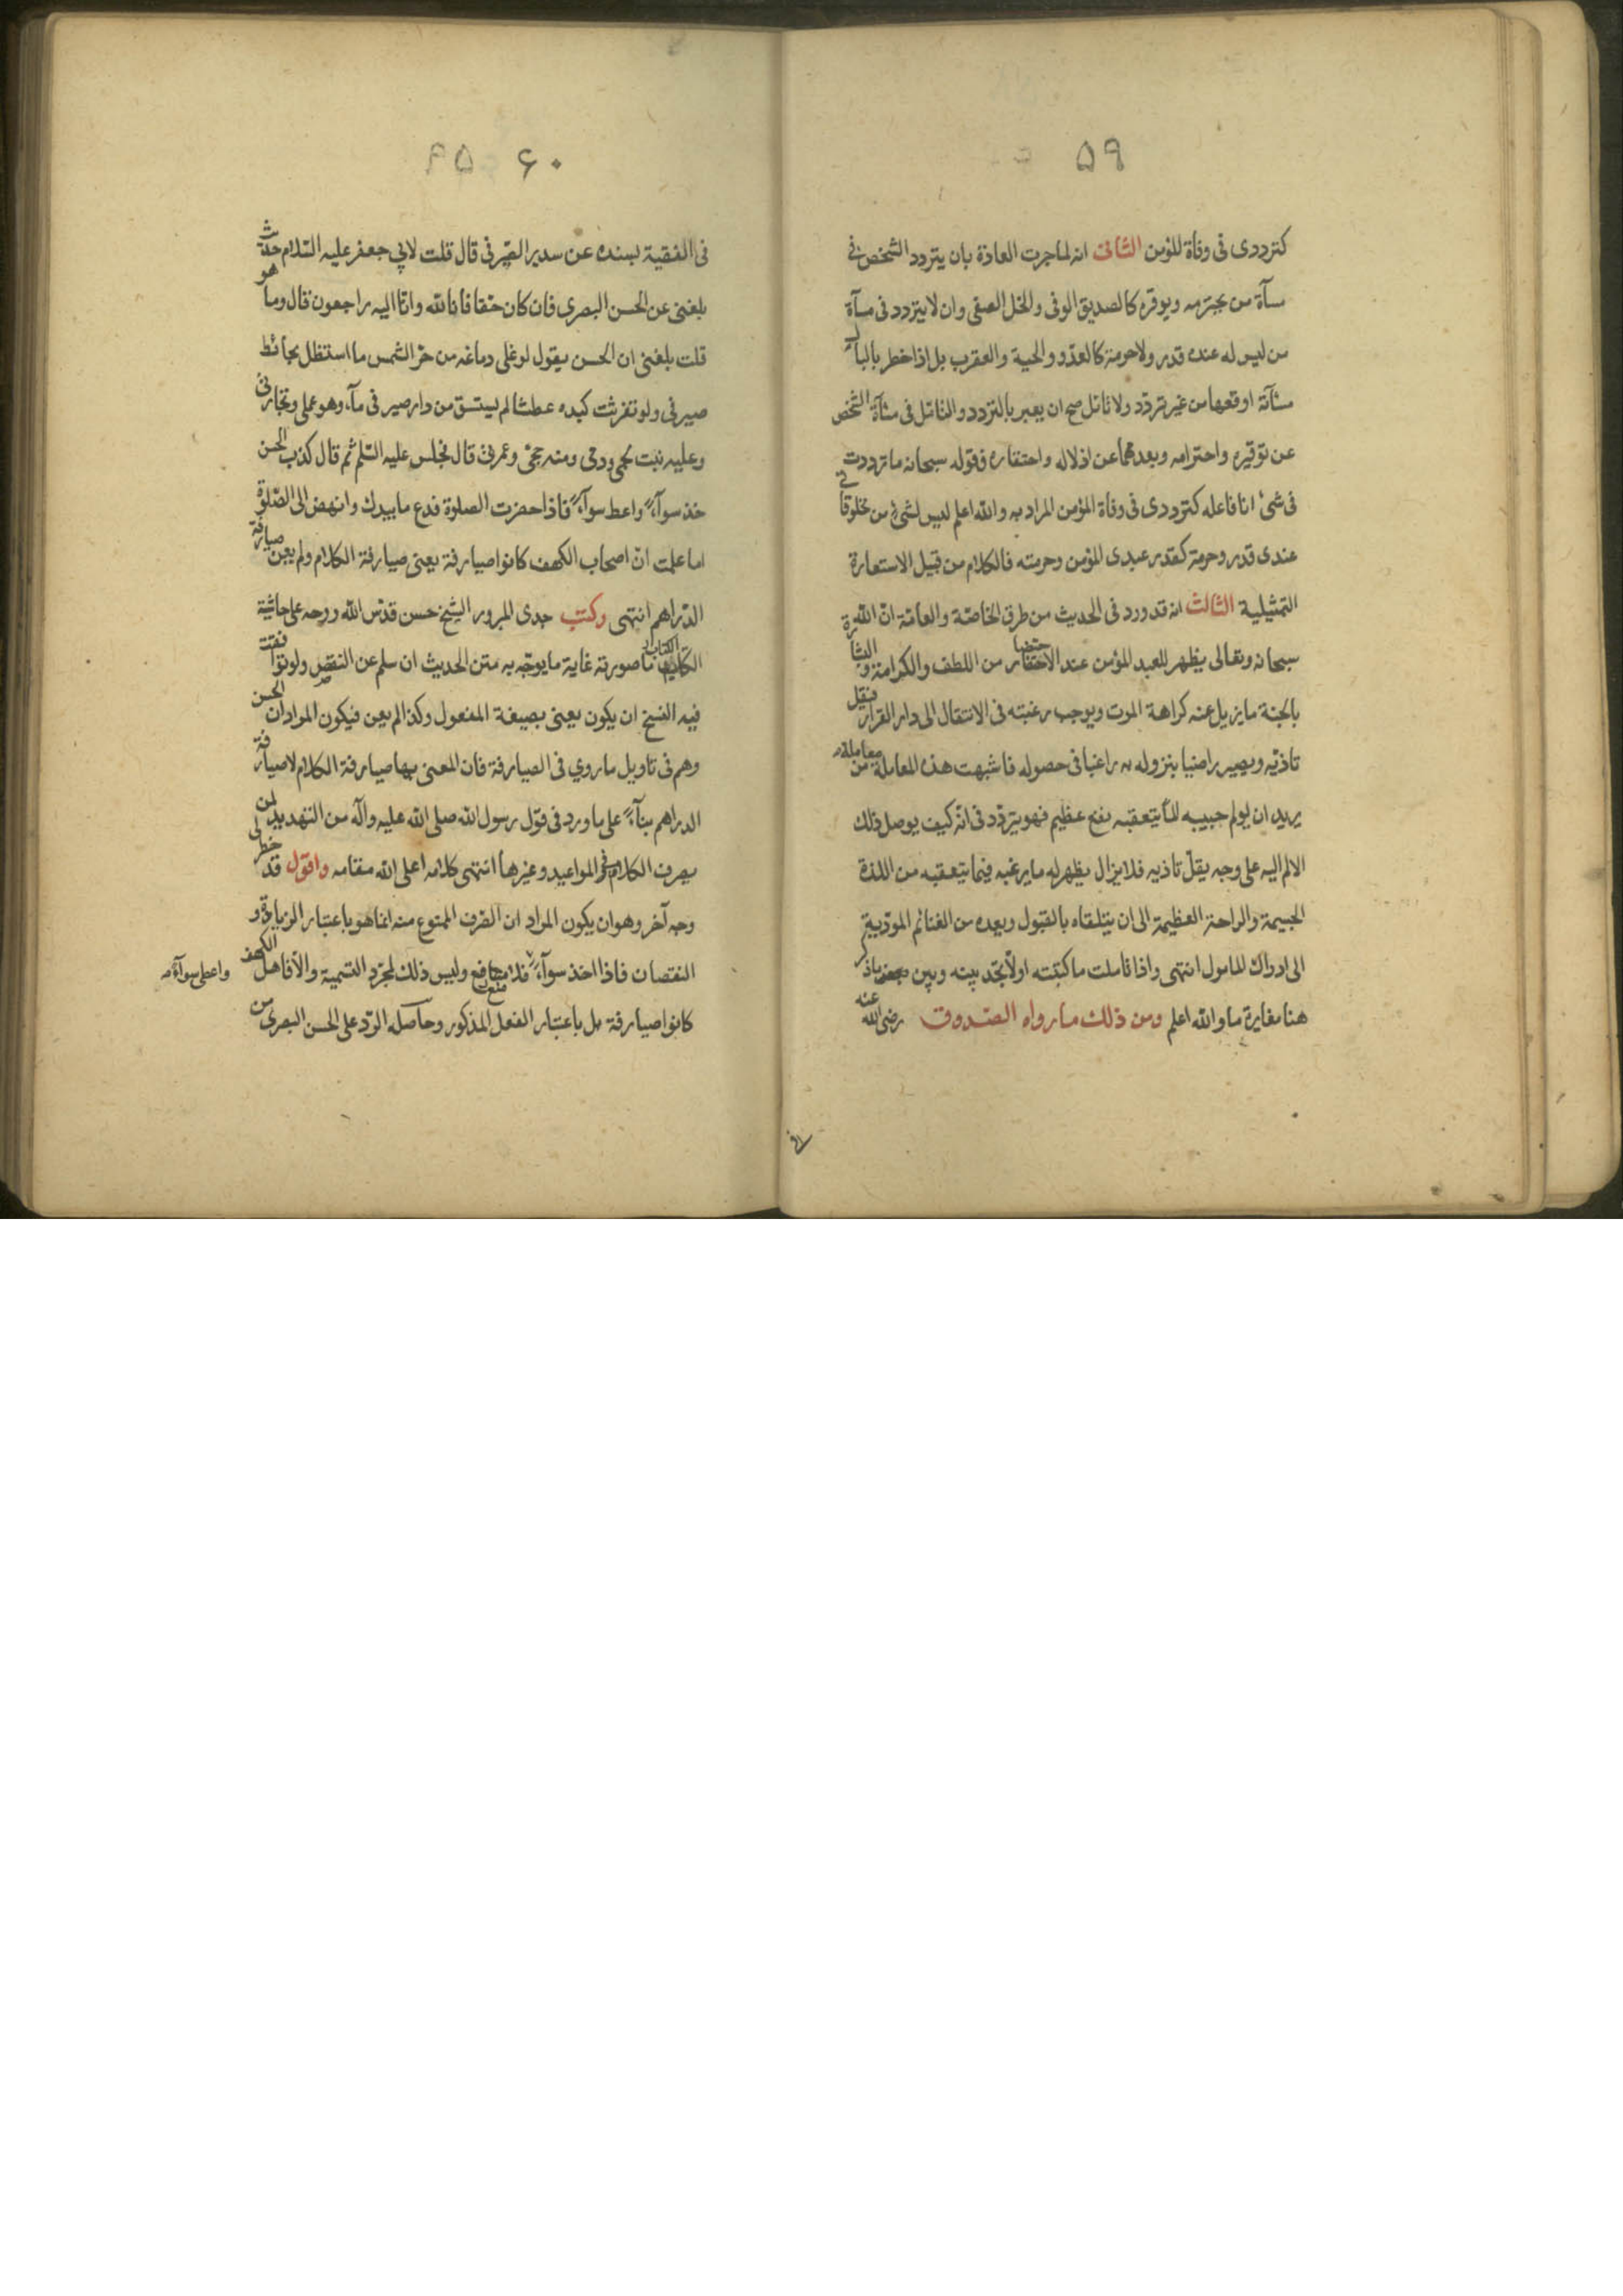 ۵۹
كترددى فى وفاة المؤمن الثانى انه لما جرت العادة بان يتردد الشخص فى
مسآة من يحترمه ويوقره كالصديق الوفى والخل الصفى وان لا يتردد فى مسآة
من ليس له عنده قدر ولا حرمة كالعدو والحية والعقرب بل اذا خطر بالبال
مسآته اوقعها من غير تردد ولا تامل صح ان يعبر بالتردد والتامل فى مسآة الشخص
عن توقيره واحترامه وبعدمهما عن اذلاله واحتقاره فقوله سبحانه ما ترددت
فى شىء انا فاعله كترددى فى وفاة المؤمن المراد به والله اعلم ليس لشىء من مخلوقاتى
عندى قدر وحرمة كقدر عبدى المؤمن وحرمته فالكلام من قبيل الاستعارة
التمثيلية الثالث انه قد ورد فى الحديث من طرق الخاصة والعامة ان الله
سبحانه وتعالى يظهر للعبد المؤمن عند الاحتضار من اللطف والكرامة والبشارة
بالجنة ما يزيل عنه كراهة الموت ويوجب رغبته فى الانتقال الى دار القرار فيقل
تاذيه ويصير راضيا بنزوله به راغبا فى حصوله فاشبهت هذه المعاملة معاملة من
يريد ان يولم حبيبه الما يتعقبه نفع عظيم فهو يتردد فى انه كيف يوصل ذلك
الالم اليه على وجه يقل تاذيه فلا يزال يظهر له ما يرغبه فيما يتعقبه من اللذة
الجسيمة والراحة العظيمة الى ان يتلقاه بالقبول ويعده من الغنائم المودية
الى ادراك المامول انتهى واذا تاملت ما كتبته اولا تجد بينه وبين ما ذكر
هنا مغايرة ما والله اعلم ومن ذلك ما رواه الصدوق رضى الله عنه
۶۰ ۵۹
فى الفقية بسنده عن سدير الصيرفى قال قلت لابي جعفر عليه السلام حديث
بلغنى عن الحسن البصرى فان كان حقا فانا لله وانا اليه راجعون قال وما هو
قلت بلغنى ان الحسن يقول لو غلى دماغه من حر الشمس ما استظل بحائط
صيرفى ولو تفرثت كبده عطشا لم يستسق من دار صيرفى مآء وهو عملى وتجارتى
وعليه نبت لحمى ودمى ومنه حجى وعمرتى قال فجلس عليه السلم ثم قال كذب الحسن
خذ سوآء واعط سوآء فاذا حضرت الصلوة فدع ما بيدك وانهض الى الصلوة
اما علمت ان اصحاب الكهف كانوا صيارفة يعنى صيارفة الكلام ولم يعن صيارفة
الدراهم انتهى وكتب جدى المبرور الشيخ حسن قدس الله روحه على حاشية
الكتاب ما صورته غاية ما يوجه به متن الحديث ان سلم عن النقص ولو توافقت
فيه النسخ ان يكون يعنى بصيغة المفعول وكذا لم يعن فيكون المراد ان الحسن
وهم فى تاويل ما روي فى الصيارفة فان المعنى بها صيارفة الكلام لا صيارفة
الدراهم بنآء على ما ورد فى قول رسول الله صلى الله عليه وآله من التهديد لمن
يصرف الكلام فى المواعيد وغيرها انتهى كلامه اعلى الله مقامه واقول قد خطر لى
وجه آخر وهو ان يكون المراد ان الصرف الممنوع منه انما هو باعتبار الزيادة و
النقصان فاذا اخذ سوآء فلا منع وليس ذلك لمجرد التسمية والا فاهل الكهف
واعطى سوآء
كانوا صيارفة بل باعتبار الفعل المذكور وحاصله الرد على الحسن البصرى من